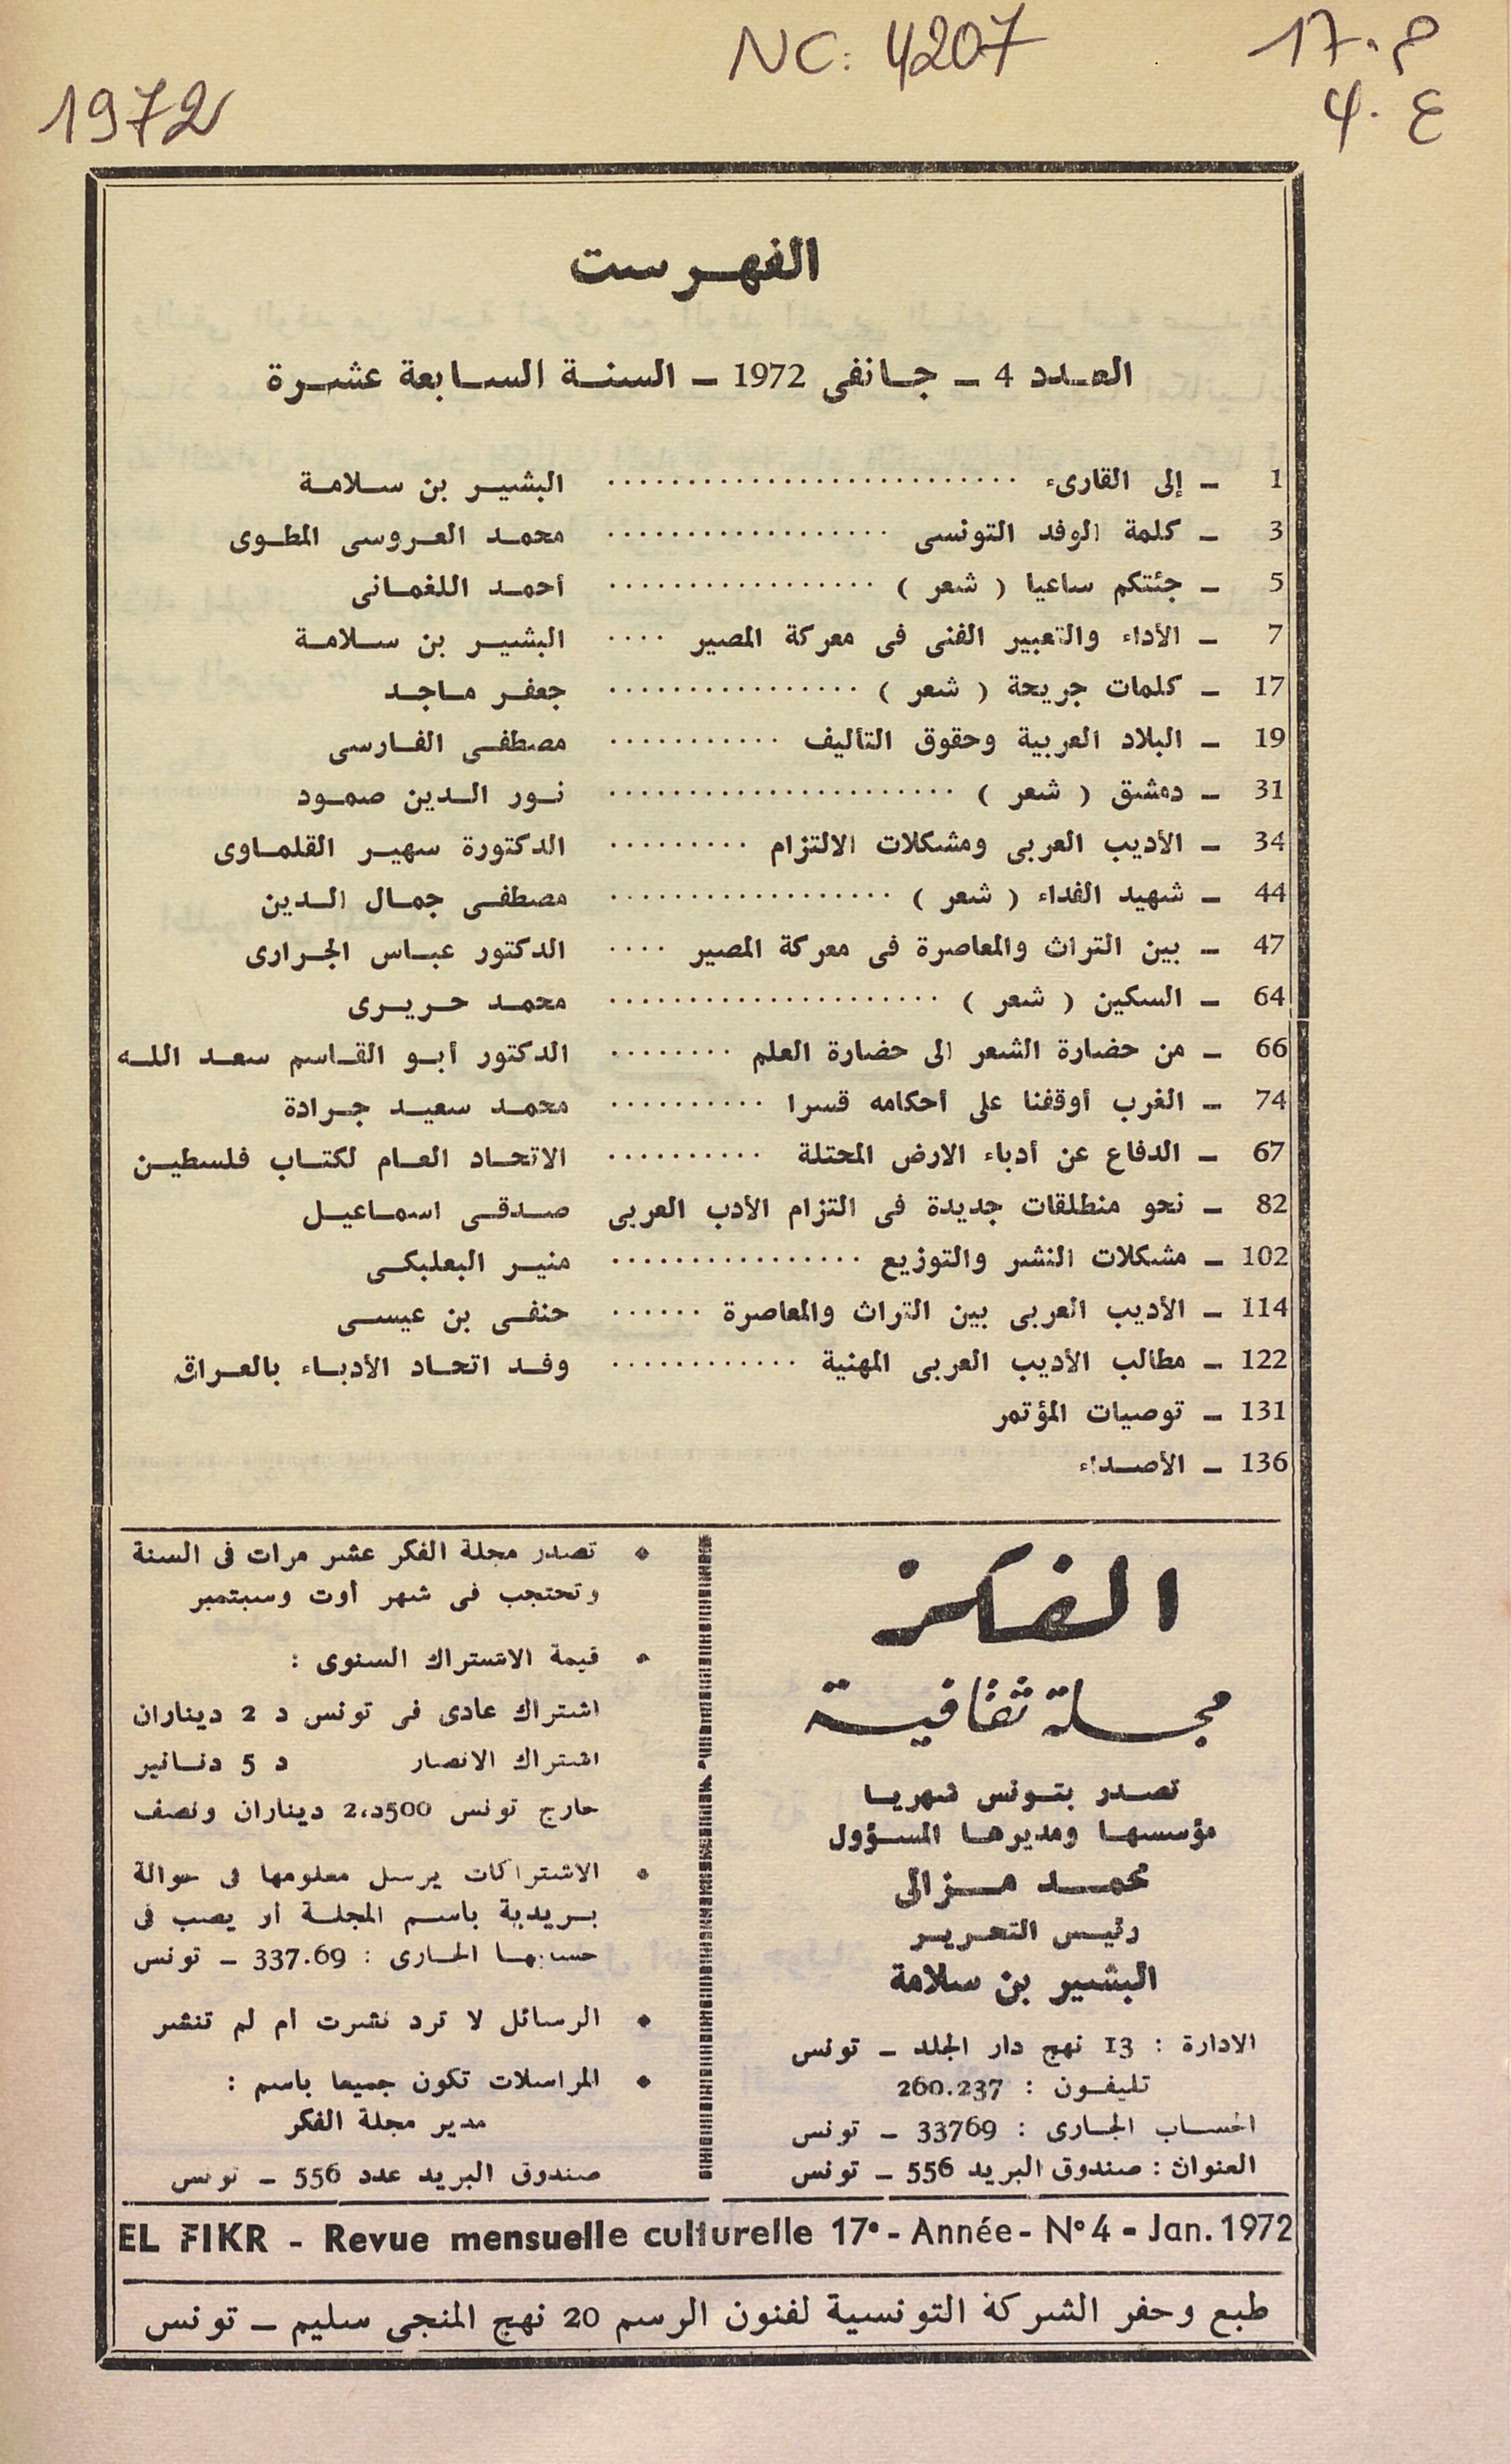 NC: 4207
م. 17
ع. 4
1972
الفهرست
العدد 4 ــ جانفى 1972 ــ السنة السابعة عشرة
1 ــ إلى القارىء ........................ البشير بن سلامة
3 ــ كلمة الوفد التونسى .................. محمد العروسى المطوى
5 ــ جئتكم ساعيا ( شعر ) ................. أحمد اللغمانى
7 ــ الأداء والتعبير الفنى فى معركة المصير .... البشير بن سلامة
17 ــ كلمات جريحة ( شعر ) ................ جعفر ماجد
19 ــ البلاد العربية وحقوق التأليف ........... مصطفى الفارسى
31 ــ دمشق ( شعر ) ...................... نور الدين صمود
34 ــ الأديب العربى ومشكلات الالتزام ......... الدكتورة سهير القلماوى
44 ــ شهيد الفداء ( شعر ) .................. مصطفى جمال الدين
47 ــ بين التراث والمعاصرة فى معركة المصير .... الدكتور عباس الجرارى
64 ــ السكين ( شعر ) ..................... محمد حريرى
66 ــ من حضارة الشعر الى حضارة العلم ........ الدكتور أبو القاسم سعد الله
74 ــ الغرب أوقفنا على أحكامه قسرا .......... محمد سعيد جرادة
67 ــ الدفاع عن أدباء الارض المحتلة .......... الاتحاد العام لكتاب فلسطين
82 ــ نحو منطلقات جديدة فى التزام الأدب العربى صدقى اسماعيل
102 ــ مشكلات النشر والتوزيع ................ منير البعلبكى
114 ــ الأديب العربى بين التراث والمعاصرة ...... حنفى بن عيسى
122 ــ مطالب الأديب العربى المهنية ............ وفد اتحاد الأدباء بالعراق
131 ــ توصيات المؤتمر
136 ــ الأصداء
الفكر
مجلة ثقافية
تصدر بتونس شهريا
مؤسسها ومديرها المسؤول
محمد مزالى
رئيس التحرير
البشير بن سلامة
الادارة : 13 نهج دار الجلد ــ تونس
تليفون : 260.237
الحساب الجارى : 33769 ــ تونس
العنوان : صندوق البريد 556 ــ تونس
• تصدر مجلة الفكر عشر مرات فى السنة
وتحتجب فى شهر أوت وسبتمبر
• قيمة الاشتراك السنوى :
اشتراك عادى فى تونس د 2 ديناران
اشتراك الانصار د 5 دنانير
خارج تونس 500د،2 ديناران ونصف
• الاشتراكات يرسل معلومها فى حوالة
بريدية باسم المجلة أو يصب فى
حسابها الجارى : 337.69 ــ تونس
• الرسائل لا ترد نشرت أم لم تنشر
• المراسلات تكون جميعا باسم :
مدير مجلة الفكر
صندوق البريد عدد 556 ــ تونس
EL FIKR - Revue mensuelle culturelle 17e - Année - N° 4 - Jan. 1972
طبع وحفر الشركة التونسية لفنون الرسم 20 نهج المنجى سليم ــ تونس